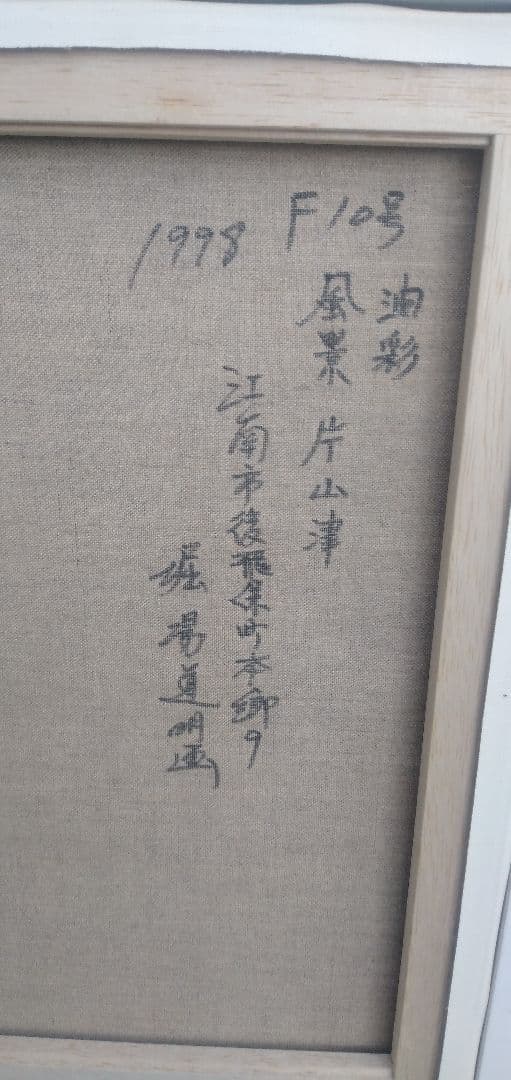 F10号
油彩
風景 片山津
1998
江南市後飛保町本郷9
堀場道明画